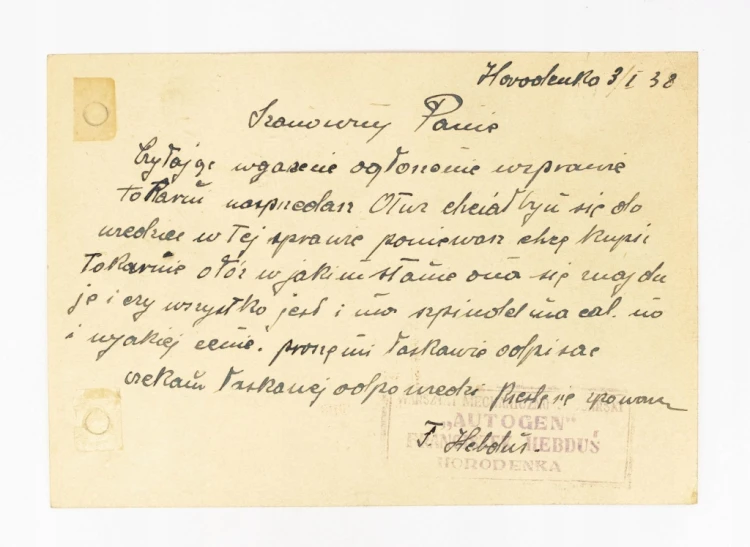 Horodenka 3/I 38
Szanowny Panie
Czytając wgazecie ogłoszenie wsprawie
tokarni nasprzedarz Otuz chciałbym się do
wiedziec w tej sprawie poniewarz chcę kupić
Tokarnie otóż w jakim stanie ona się znajdu
je i czy wszystko jest i ma szpindel na cal. no
i wjakiej cenie. proszę mi łaskawie odpisac
czekam łaskawej odpowiedzi
F. Hebduś.
WARSZTAT MECHANICZNO
"AUTOGEN"
HEBDUŚ
HORODENKA